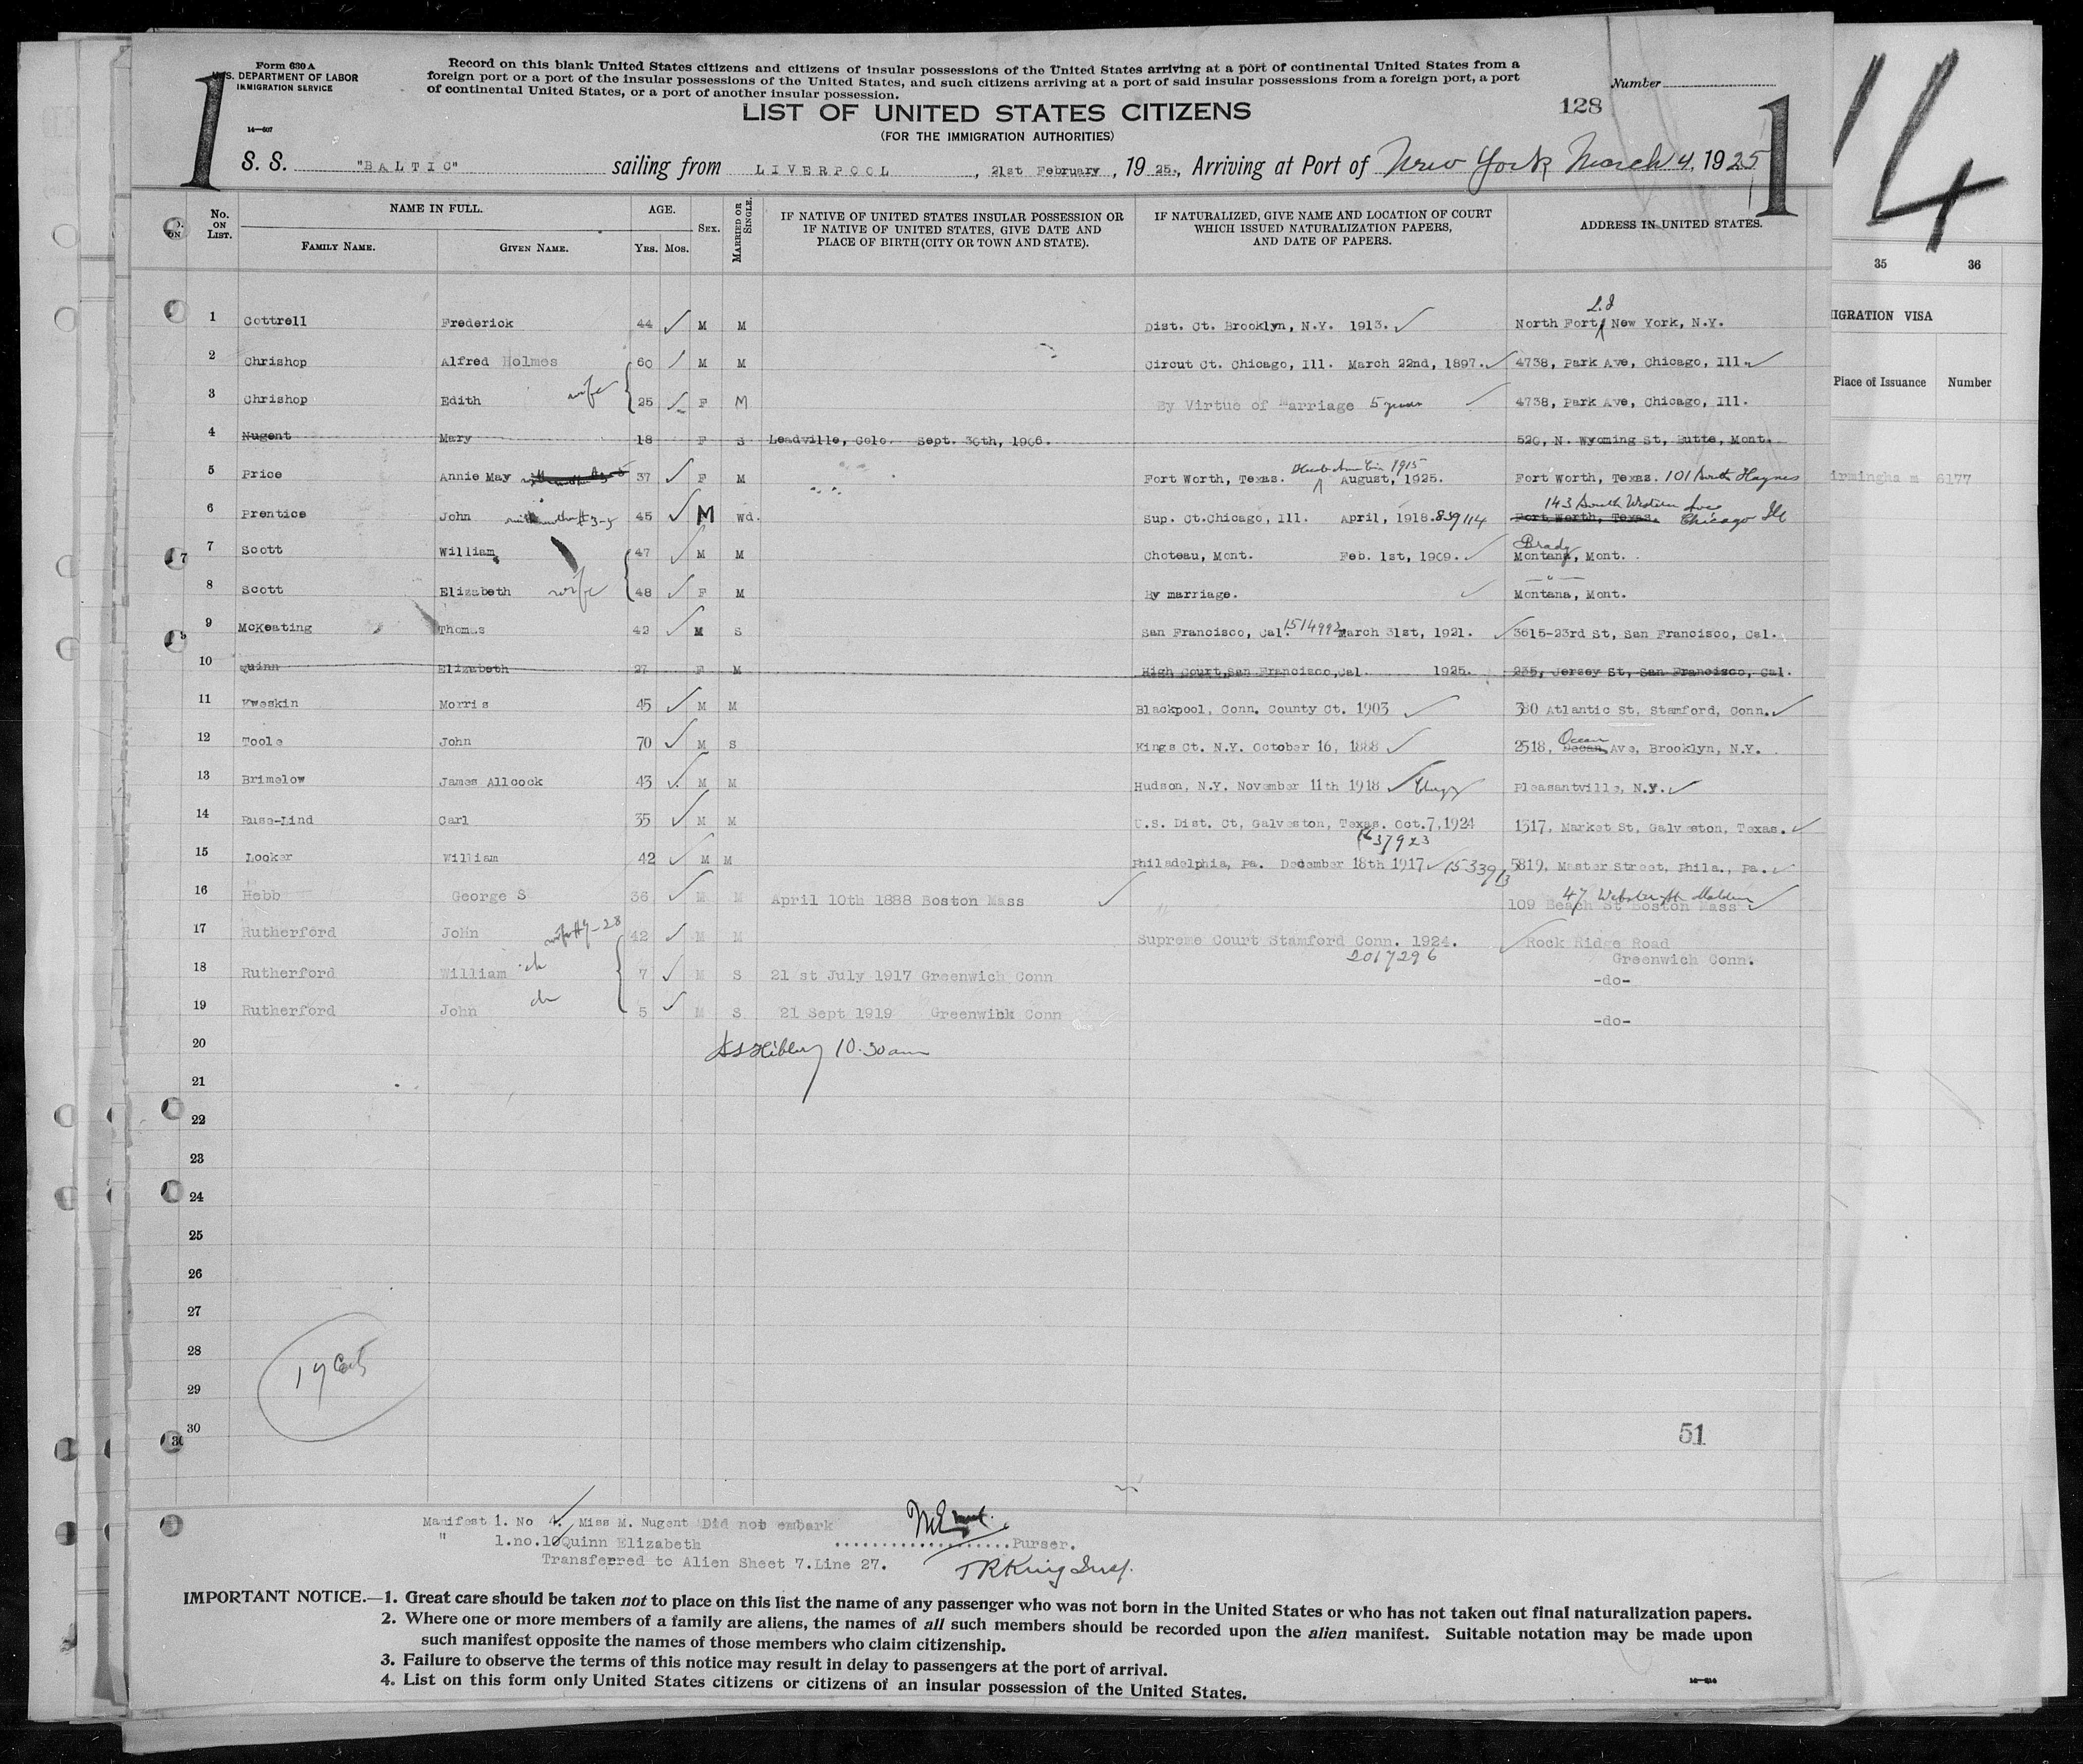 Form 630 A
U.S. DEPARTMENT OF LABOR
IMMIGRATION SERVICE
14—607
Record on this blank United States citizens and citizens of insular possessions of the United States arriving at a port of continental United States from a
foreign port or a port of the insular possessions of the United States, and such citizens arriving at a port of said insular possessions from a foreign port, a port
of continental United States, or a port of another insular possession.
Number
128
1
1
14
LIST OF UNITED STATES CITIZENS
(FOR THE IMMIGRATION AUTHORITIES)
S. S. "BALTIC" sailing from LIVERPOOL, 21st February, 1925., Arriving at Port of New York, March 4, 1925
No. ON LIST.
NAME IN FULL.
FAMILY NAME.
GIVEN NAME.
AGE.
YRS.
MOS.
SEX.
MARRIED OR SINGLE.
IF NATIVE OF UNITED STATES INSULAR POSSESSION OR
IF NATIVE OF UNITED STATES, GIVE DATE AND
PLACE OF BIRTH (CITY OR TOWN AND STATE).
IF NATURALIZED, GIVE NAME AND LOCATION OF COURT
WHICH ISSUED NATURALIZATION PAPERS,
AND DATE OF PAPERS.
ADDRESS IN UNITED STATES.
35
36
IGRATION VISA
Place of Issuance
Number
irmingham 6177
1 Cottrell Frederick 44 M M Dist. Ct. Brooklyn, N.Y. 1913. North Fort, L.I New York, N.Y.
2 Chrishop Alfred Holmes 60 M M Circut Ct. Chicago, Ill. March 22nd, 1897. 4738, Park Ave, Chicago, Ill.
3 Chrishop Edith wife 25 F M By Virtue of Marriage 5 years 4738, Park Ave, Chicago, Ill.
4 Nugent Mary 18 F S Leadville, Colo. Sept. 30th, 1906. 520, N. Wyoming St, Butte, Mont.
5 Price Annie May 37 F M Fort Worth, Texas. 1915 August, 1925. Fort Worth, Texas. 101 South Haynes
6 Prentice John 45 M Wd. Sup. Ct.Chicago, Ill. April, 1918. 839114 Fort Worth, Texas. 143 South Western Ave Chicago Ill
7 Scott William 47 M M Choteau, Mont. Feb. 1st, 1909. Brady Montana, Mont.
8 Scott Elizabeth wife 48 F M By marriage. Montana, Mont.
9 McKeating Thomas 42 M S San Francisco, Cal. 1514992 March 31st, 1921. 3615-23rd St, San Francisco, Cal.
10 Quinn Elizabeth 27 F M High Court, San Francisco, Cal. 1925. 235, Jersey St, San Francisco, Cal.
11 Kweskin Morris 45 M M Blackpool, Conn. County Ct. 1903 380 Atlantic St, Stamford, Conn.
12 Toole John 70 M S Kings Ct. N.Y. October 16, 1888 2518, Ocean Ave, Brooklyn, N.Y.
13 Brimelow James Allcock 43 M M Hudson, N.Y. November 11th 1918 Pleasantville, N.Y.
14 Ruse-Lind Carl 35 M M U.S. Dist. Ct, Galveston, Texas. Oct.7,1924 1517, Market St, Galveston, Texas.
15 Looker William 42 M M Philadelphia, Pa. December 18th 1917 5819, Master Street, Phila., Pa.
16 Hebb George S 36 M M April 10th 1888 Boston Mass 109 Beach St Boston Mass 47 Webster St Malden
17 Rutherford John wife #9-28 42 M M Supreme Court Stamford Conn. 1924. 2017296 Rock Ridge Road
Greenwich Conn.
18 Rutherford William ch 7 M S 21 st July 1917 Greenwich Conn -do-
19 Rutherford John ch 5 M S 21 Sept 1919 Greenwich Conn -do-
20 10.30am
21
22
23
24
25
26
27
28
29
30
51
Manifest 1. No 4. Miss M. Nugent Did not embark
" 1.no.10 Quinn Elizabeth Purser.
Transferred to Alien Sheet 7.Line 27. T R King Insp.
IMPORTANT NOTICE.—1. Great care should be taken not to place on this list the name of any passenger who was not born in the United States or who has not taken out final naturalization papers.
2. Where one or more members of a family are aliens, the names of all such members should be recorded upon the alien manifest. Suitable notation may be made upon
such manifest opposite the names of those members who claim citizenship.
3. Failure to observe the terms of this notice may result in delay to passengers at the port of arrival.
4. List on this form only United States citizens or citizens of an insular possession of the United States.